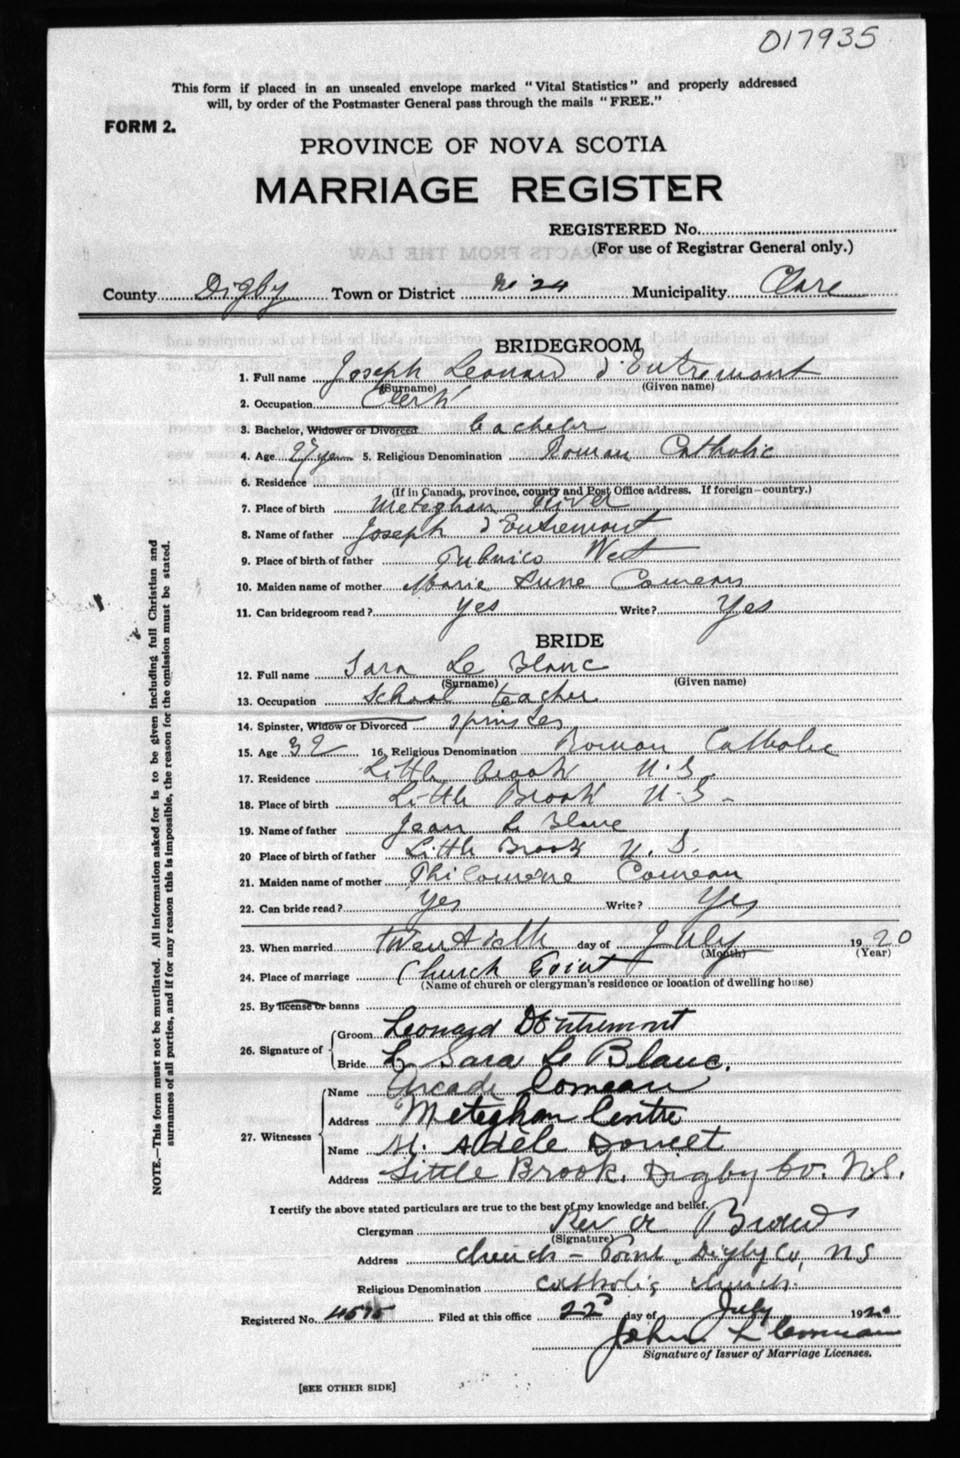 017935
This form if placed in an unsealed envelope marked "Vital Statistics" and properly addressed
will, by order of the Postmaster General pass through the mails "FREE."
FORM 2.
PROVINCE OF NOVA SCOTIA
MARRIAGE REGISTER
REGISTERED No.
(For use of Registrar General only.)
EXTRACTS FROM THE LAW
County Digby Town or District No 24 Municipality Clare
BRIDEGROOM
1. Full name Joseph Leonard d'Entremont
(Surname) (Given name)
2. Occupation Clerk
3. Bachelor, Widower or Divorced bachelor
4. Age 27 years 5. Religious Denomination Roman Catholic
6. Residence
(If in Canada, province, county and Post Office address. If foreign—country.)
7. Place of birth Meteghan River
8. Name of father Joseph d'Entremont
9. Place of birth of father Pubnico West
10. Maiden name of mother Marie Comeau
11. Can bridegroom read? yes Write? Yes
BRIDE
12. Full name Sara Le Blanc
(Surname) (Given name)
13. Occupation School teacher
14. Spinster, Widow or Divorced spinster
15. Age 32 16. Religious Denomination Roman Catholic
17. Residence Little brook N.S.
18. Place of birth Little Brook N.S.
19. Name of father Jean Le Blanc
20 Place of birth of father Little Brook N.S.
21. Maiden name of mother Philomene Comeau
22. Can bride read? Yes Write? Yes
23. When married twentieth day of July 1920
(Month) (Year)
24. Place of marriage Church Point
(Name of church or clergyman's residence or location of dwelling house)
25. By license or banns
26. Signature of
Groom Leonard D'Entremont
Bride L. Sara Le Blanc.
27. Witnesses
Name Arcade Comeau
Address Meteghan Centre
Name M. Adèle Doucet
Address Little Brook, Digby Co. N.S.
I certify the above stated particulars are true to the best of my knowledge and belief.
Clergyman Rev
(Signature)
Address Church-Point, Digby Co, NS
Religious Denomination Catholic church.
Registered No. 4595 Filed at this office 22 day of July 1920
John
Signature of Issuer of Marriage Licenses.
[SEE OTHER SIDE]
NOTE.—This form must not be mutilated. All information asked for is to be given including full Christian and
surnames of all parties, and if for any reason this is impossible, the reason for the omission must be stated.